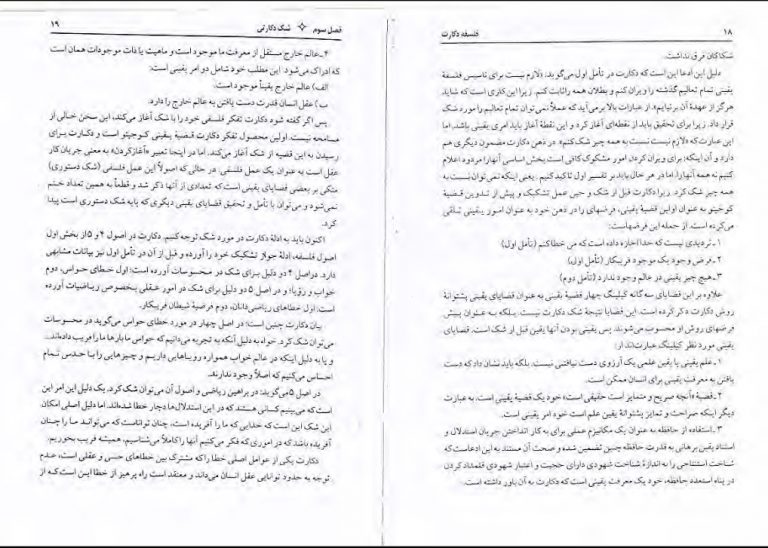 ۱۸
فلسفه دکارت
شکاکان فرق نداشت.
دلیل این ادعا این است که دکارت در تأمل اول می‌گوید: «لازم نیست برای تاسیس فلسفهٔ
یقینی تمام تعالیم گذشته را ویران کنم و بطلان همه را ثابت کنم. زیرا این کاری است که شاید
هرگز از عهدهٔ آن برنیایم». از عبارات بالا برمی‌آید که عملاً نمی‌توان تمام تعالیم را مورد شک
قرار داد. زیرا برای تحقیق باید از نقطه‌ای آغاز کرد و این نقطهٔ آغاز باید امری یقینی باشد. اما
این عبارت که «لازم نیست نسبت به همه چیز شک کنم». در ذهن دکارت مضمون دیگری هم
دارد و آن اینکه: برای ویران کردن امور مشکوک کافی است بخش اساسی آنها را مردود اعلام
کنیم نه همه آنها را، اما در هر حال باید بر تفسیر اول تاکید کنیم. یعنی اینکه نمی‌توان نسبت به
همه چیز شک کرد. زیرا دکارت قبل از شک و حین عمل تشکیک و پیش از تدوین قضیهٔ
کوجیتو به عنوان اولین قضیهٔ یقینی، فرضهای را در ذهن خود به عنوان امور یقینی تلقی
می‌کرده است. از جمله این فرضهاست:
۱ـ تردیدی نیست که خدا اجازه داده است که من خطا کنم (تأمل اول)
۲ـ فرض وجود یک موجود فریبکار (تأمل اول)
۳ـ هیچ چیز یقینی در عالم وجود ندارد (تأمل دوم)
علاوه بر این قضایای سه گانه کیلینگ چهار قضیهٔ یقینی به عنوان قضایای یقینی پشتوانهٔ
روش دکارت ذکر کرده است. این قضایا نتیجهٔ شک دکارت نیست. بلکه به عنوان پیش
فرضهای روش او محسوب می‌شوند. پس یقینی بودن آنها یقین قبل از شک است. قضایای
یقینی مورد نظر کیلینگ عبارت‌اند از:
۱ـ علم یقینی یا یقین علمی یک آرزوی دست نیافتنی نیست. بلکه باید نشان داد که دست
یافتن به معرفت یقینی برای انسان ممکن است.
۲ـ قضیهٔ «آنچه صریح و متمایز است حقیقی است» خود یک قضیهٔ یقینی است، به عبارت
دیگر اینکه صراحت و تمایز پشتوانهٔ یقین علم است خود امر یقینی است.
۳ـ استفاده از حافظه به عنوان یک مکانیزم عملی برای به کار انداختن جریان استدلال و
استناد یقین برهانی به قدرت حافظه چنین تضمین شده و صحت آن مستند به این ادعاست که
شناخت استنتاجی را به اندازهٔ شناخت شهودی دارای حجیت و اعتبار شهودی قلمداد کردن
در پناه استعداد حافظه، خود یک معرفت یقینی است که دکارت به آن باور داشته است.
فصل سوم ✧ شک دکارتی
۱۹
۴ـ عالم خارج مستقل از معرفت ما موجود است و ماهیت یا ذات موجودات همان است
که ادراک می‌شود. این مطلب خود شامل دو امر یقینی است:
الف) عالم خارج یقیناً موجود است.
ب) عقل انسان قدرت دست یافتن به عالم خارج را دارد.
پس اگر گفته شود دکارت تفکر فلسفی خود را با شک آغاز می‌کند، این سخن خالی از
مسامحه نیست. اولین محصول تفکر دکارت قضیهٔ یقینی کوجیتو است و دکارت برای
رسیدن به این قضیه از شک آغاز می‌کند. اما در اینجا تعبیر «آغاز کردن» به معنی جریان کار
عقل است به عنوان یک عمل فلسفی. در حالی که اصولاً این عمل فلسفی (شک دستوری)
متکی بر بعضی قضایای یقینی است که تعدادی از آنها ذکر شد و قطعاً به همین تعداد ختم
نمی‌شود و می‌توان با تأمل و تحقیق قضایای یقینی دیگری که پایه شک دستوری است پیدا
کرد.
اکنون باید به ادلهٔ دکارت در مورد شک توجه کنیم. دکارت در اصول ۴ و ۵ از بخش اول
اصول فلسفه، ادلهٔ جواز تشکیک خود را آورده و قبل از آن در تأمل اول نیز بیانات مشابهی
دارد. در اصل ۴ دو دلیل برای شک در محسوسات آورده است: اول خطای حواس، دوم
خواب و رؤیا؛ و در اصل ۵ دو دلیل برای شک در امور عقلی بخصوص ریاضیات آورده
است: اول خطاهای ریاضی‌دانان، دوم فرضیهٔ شیطان فریبکار.
بیان دکارت چنین است: در اصل چهار در مورد خطای حواس می‌گوید در محسوسات
می‌توان شک کرد. خواه به دلیل آنکه به تجربه می‌دانیم که حواس ما بارها ما را فریب داده‌اند...
و یا به دلیل اینکه در عالم خواب همواره رویاهایی داریم و چیزهایی را با حدسی تمام
احساس می‌کنیم که اصلاً وجود ندارند.
در اصل ۵ می‌گوید: در براهین ریاضی و اصول آن می‌توان شک کرد. یک دلیل این امر این
است که می‌بینیم کسانی هستند که در این استدلال‌ها دچار خطا شده‌اند. اما دلیل اصلی امکان
این شک این است که خدایی که ما را آفریده است، چنان تواناست که می‌تواند ما را چنان
آفریده باشد که در اموری که فکر می‌کنیم آنها را کاملاً می‌شناسیم، همیشه فریب بخوریم.
دکارت یکی از عوامل اصلی خطا را که مشترک بین خطاهای حسی و عقلی است، عدم
توجه به حدود توانایی عقل انسان می‌داند و معتقد است راه پرهیز از خطا این است که از